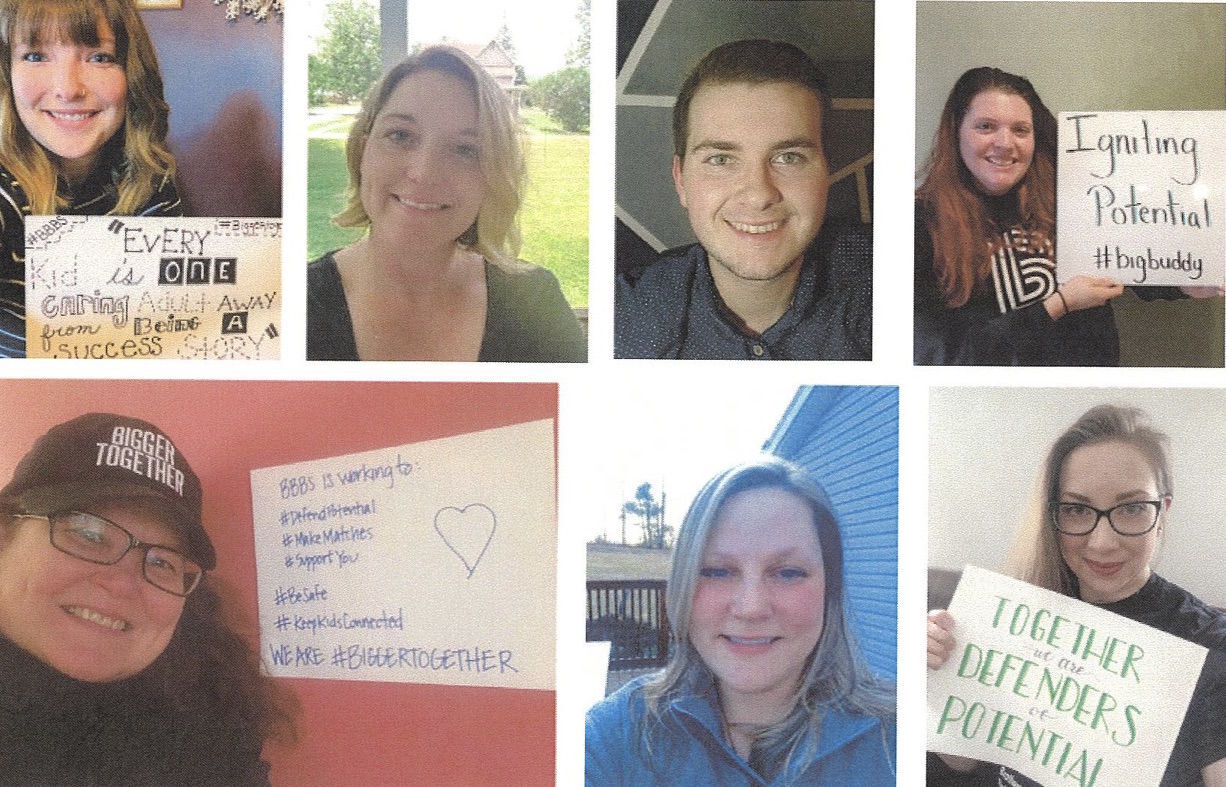 #BBBS
"EVERY
Kid is ONE
caring Adult AWAY
from Being A
SUCCESS STORY"
Igniting
Potential
#bigbuddy
BIGGER
TOGETHER
BBBS is working to:
#DefendPotential
#MakeMatches
#SupportYou
#BeSafe
#KeepKidsConnected
WE ARE #BIGGERTOGETHER
TOGETHER
we are
DEFENDERS
of
POTENTIAL